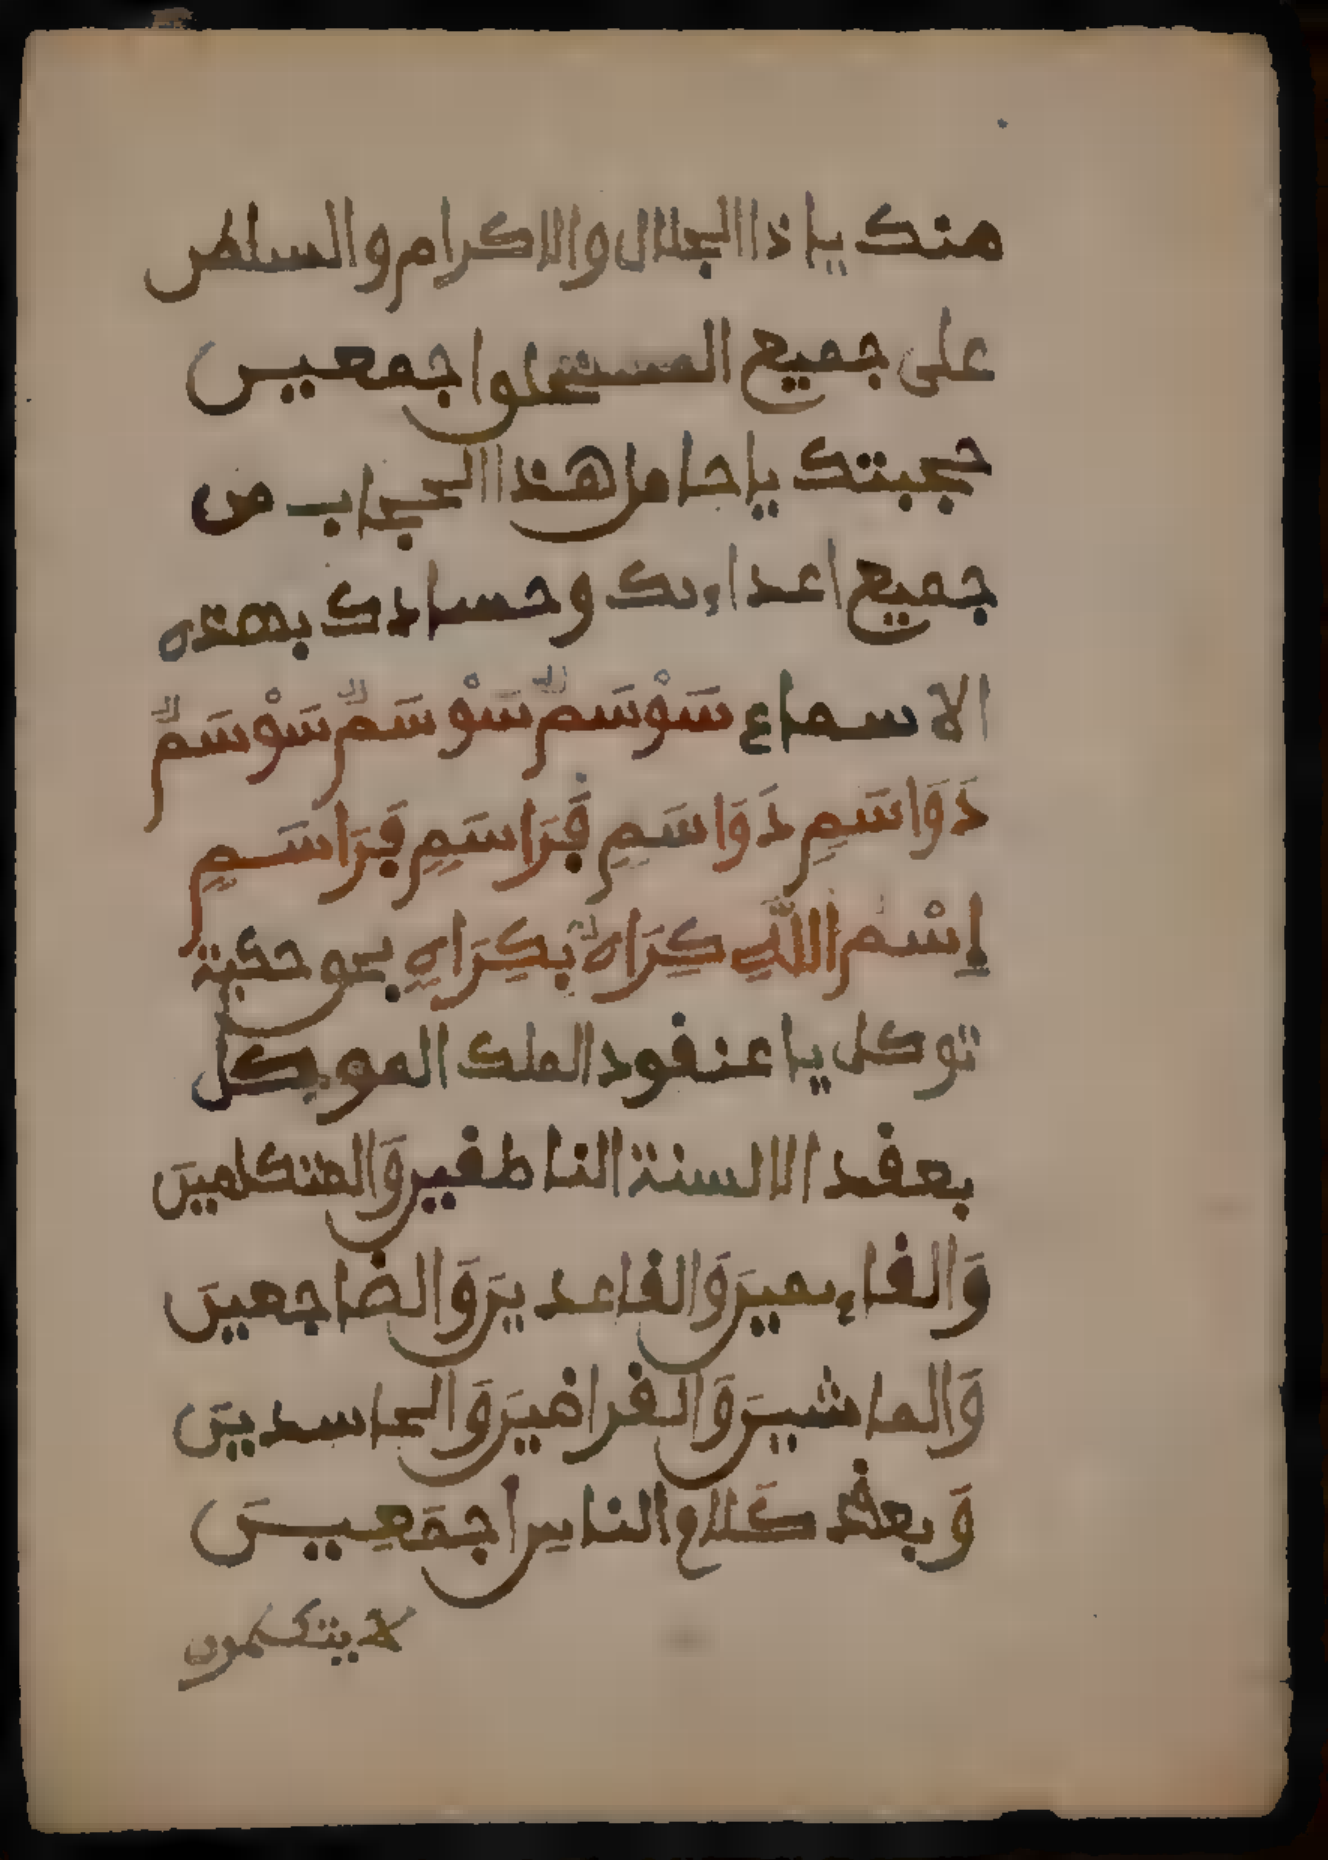 منك ياذا الجلال والاكرام والسلطن
على جميع اجمعين
حجبتك يا حامل هذا الحجاب من
جميع اعداءىك وحسادك بهذه
الاسماء سَوْسَمٌ سَوْسَمٌ سَوْسَمٌ
دَوَاسَمِ دَوَاسَمِ فِرَاسَمٍ فِرَاسَمِ
إِسْمُ اللَّهِ كِرَاهٌ بِكِرَاهٍ بحق
توكل يا عنقود الملك الموكل
بعقد الالسنة الناطقين وَالمتكلمينَ
وَالقاءىمينَ وَالقاعدينَ وَالضاجعينَ
وَالماشيينَ وَالحاسدينَ
وَبعقد كَلام الناس اجمَعِيينَ
لا يتكلمون